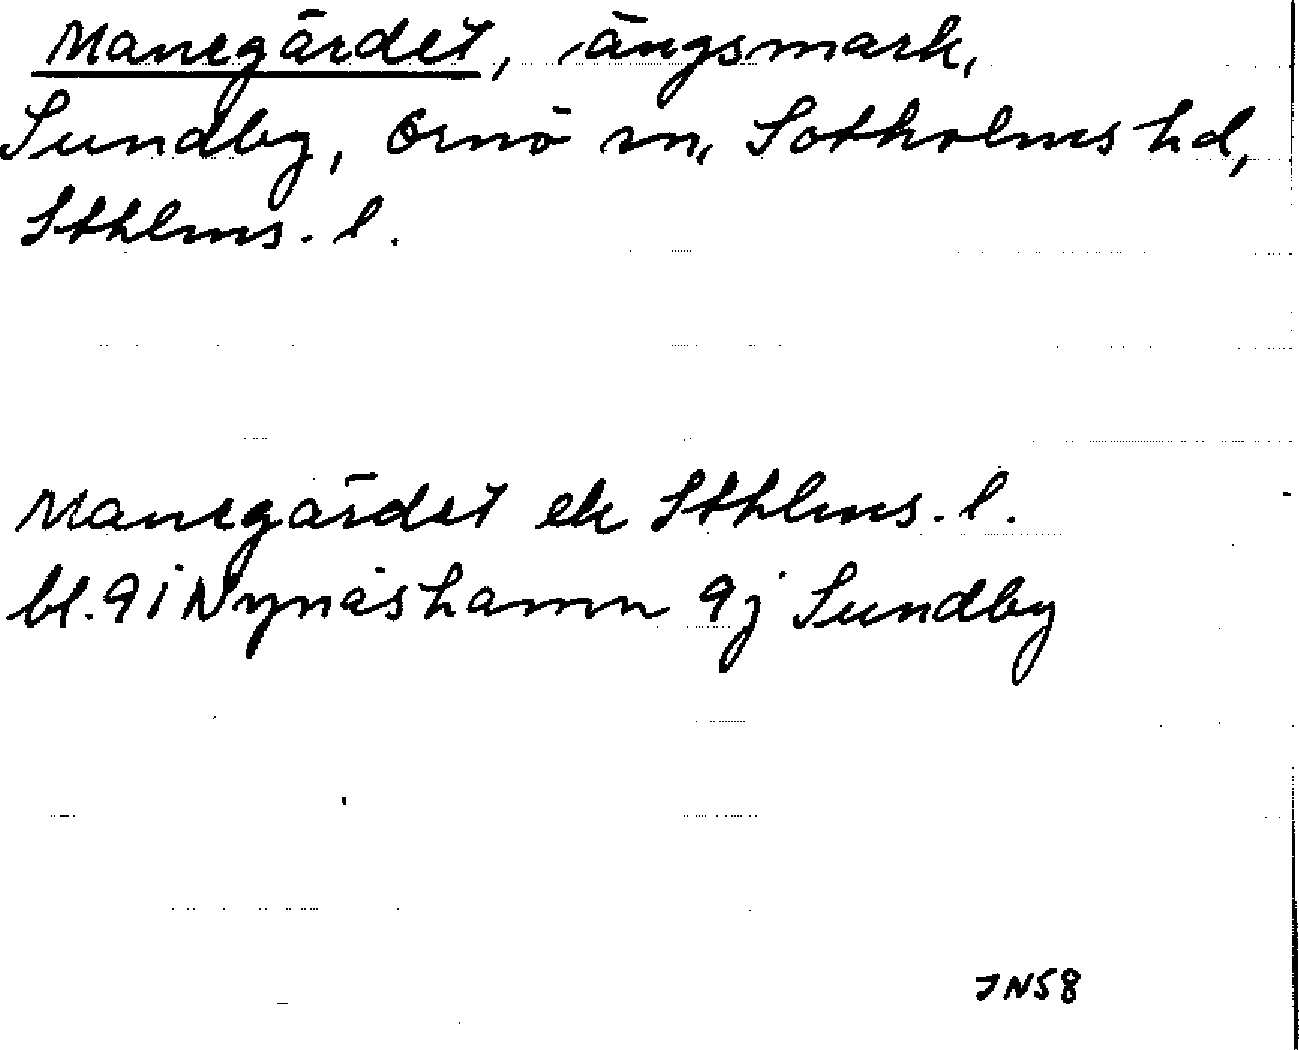 Manegärdet, ängsmark,
Sundby, Ornö sn, Sotholms hd,
Sthlms. l.
Manegärdet ek Sthlms. l.
bl. 9i Nynäshamn 9j Sundby
JN58